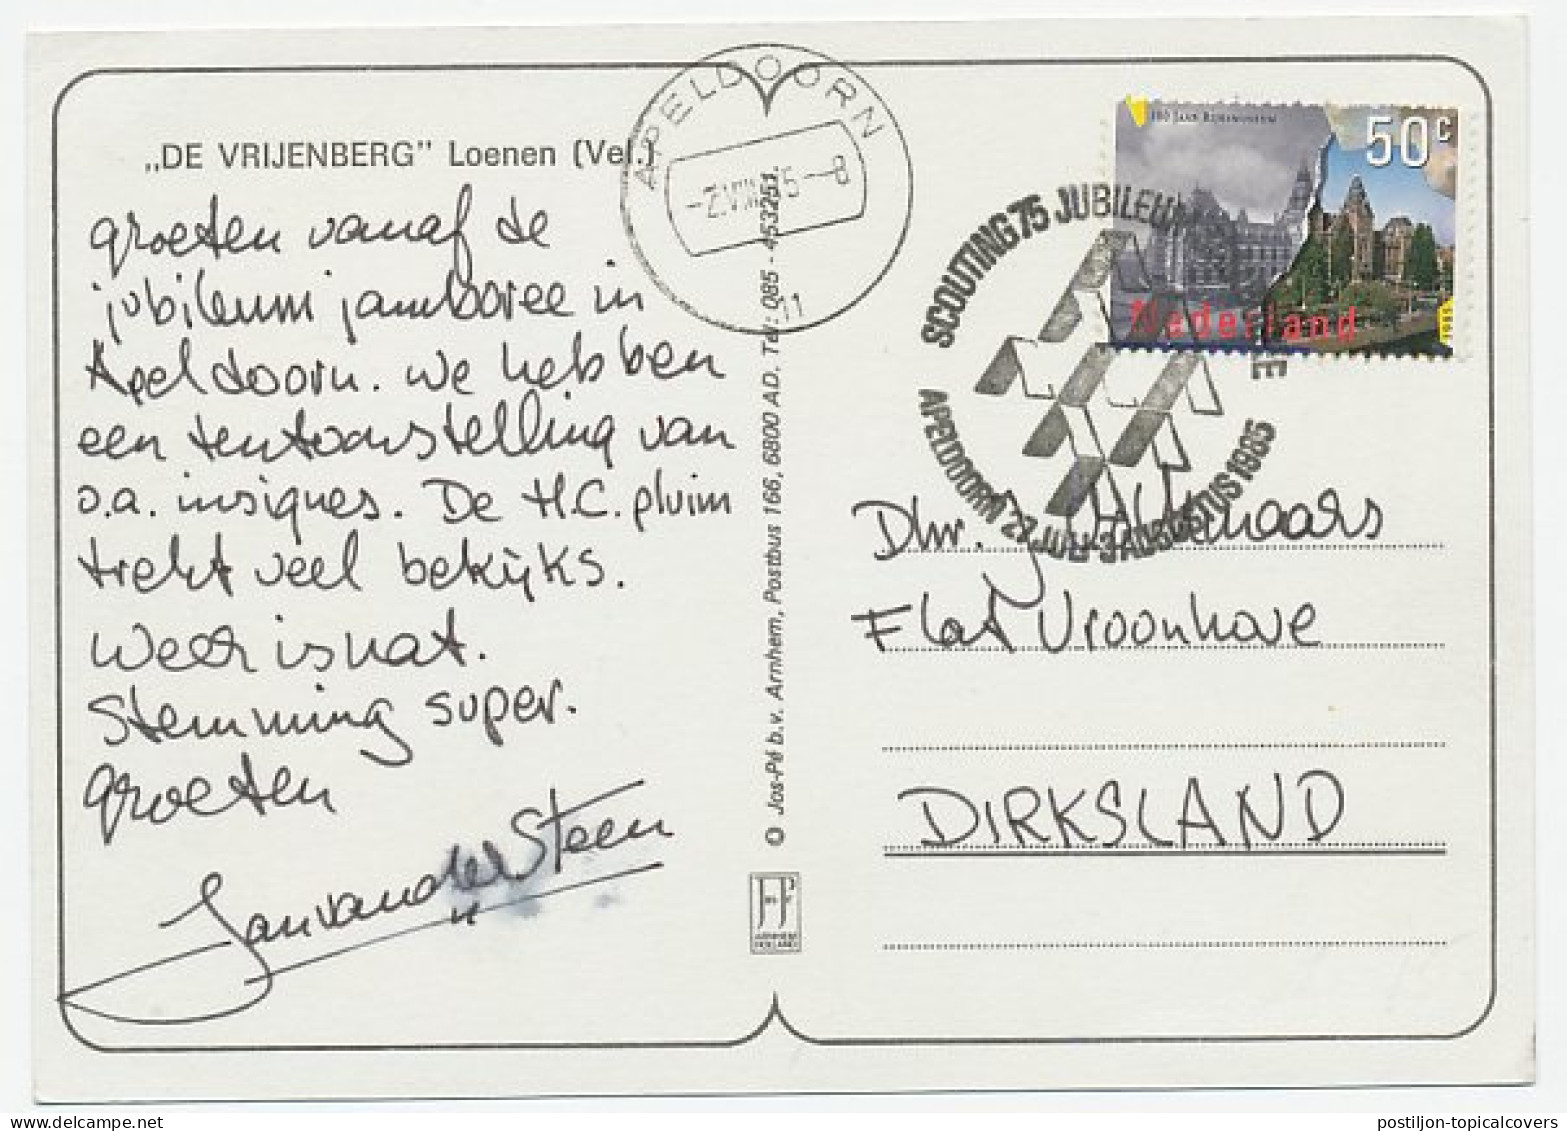 „DE VRIJENBERG" Loenen (Vel.)
groeten vanaf de
jubileum jamboree in
Apeldoorn. We hebben
een tentoonstelling van
o.a. insignes. De H.C. pluim
trekt veel bekijks.
Weer is nat.
Stemming super.
groeten
Jan van der Steen
APELDOORN
-2.VIII. 5-8
11
© Jos-Pé b.v. Arnhem, Postbus 166, 6800 AD. Tel: 085 - 453251.
ARNHEM
HOLLAND
100 JAAR RIJKSMUSEUM
50c
Nederland
1985
SCOUTING 75 JUBILEUM
APELDOORN 27 JULI-3 AUGUSTUS 1985
Dhr.
Flat Vroonhove
DIRKSLAND
postiljon-topicalcovers